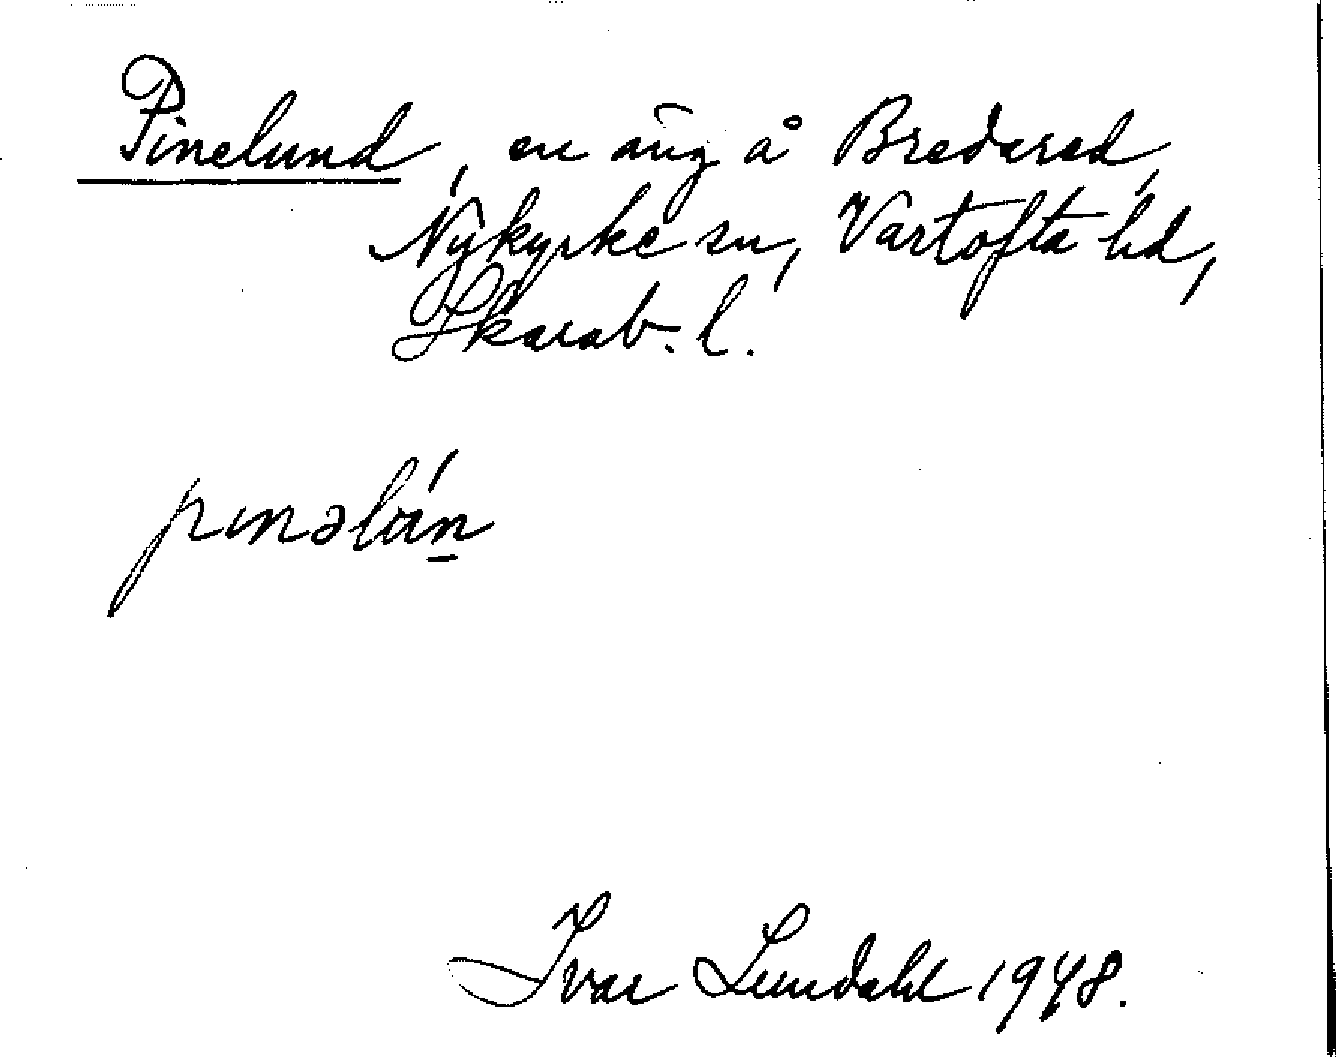 Pinelund, en äng å Bredared,
Nykyrke sn, Vartofta hd,
Skarab. l.
pinəlún̲
Ivar Lundahl 1948.